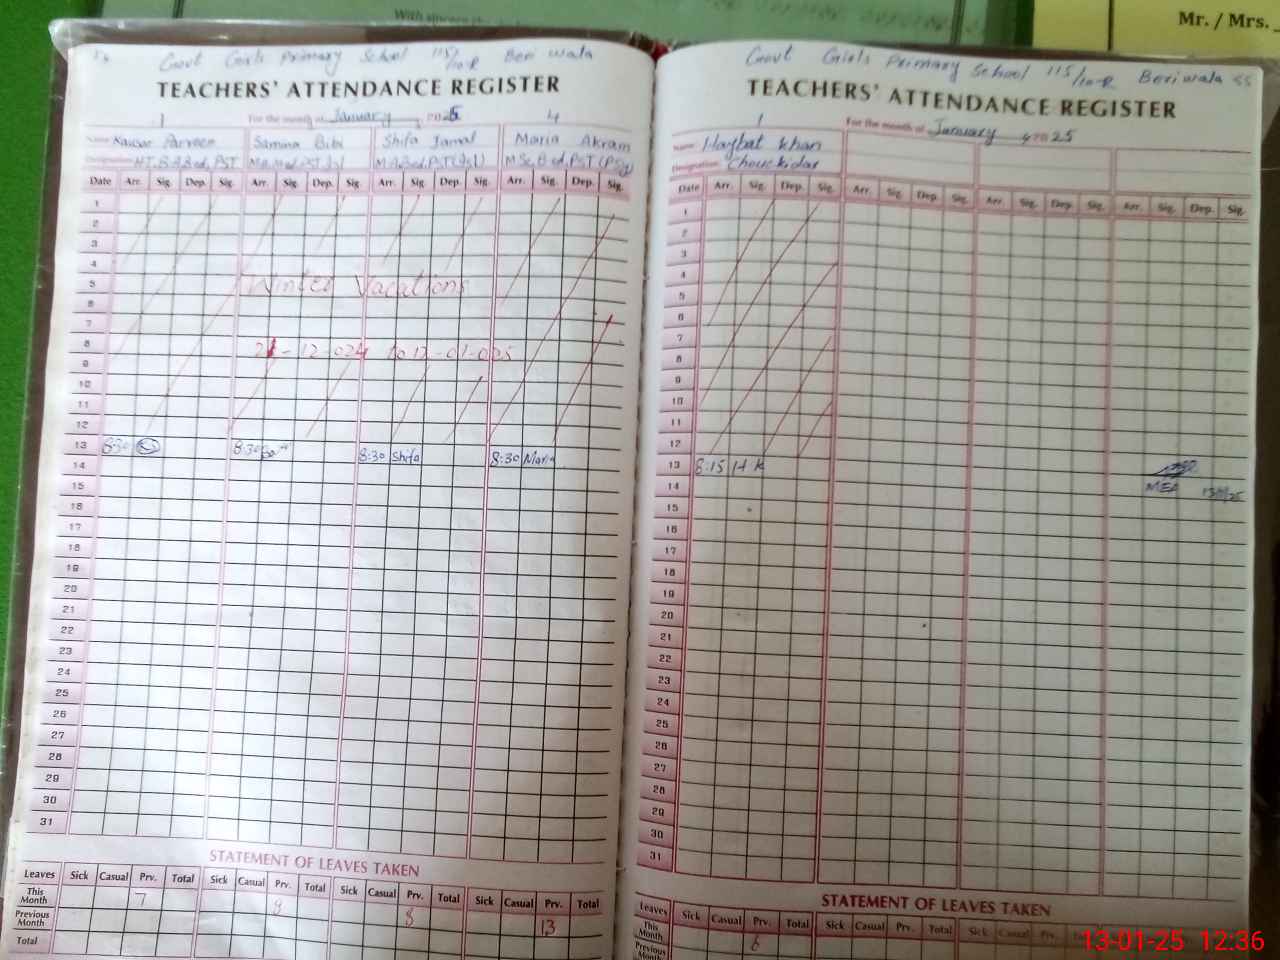 With
Mr. / Mrs.
Govt Girls Primary School 115/10-R Beri wala
TEACHERS' ATTENDANCE REGISTER
1 For the month of January 2025 4
Name Kausar Parveen Samina Bibi Shifa Jamal Maria Akram
Designation HT, B.A B.ed, PST M.A M.ed, PST M.A B.ed, PST MSc, B.ed, PST
Date Arr. Sig. Dep. Sig. Arr. Sig. Dep. Sig. Arr. Sig. Dep. Sig. Arr. Sig. Dep. Sig.
1
2
3
4
5 Winter Vacations
6
7
8 21-12-024 to 12-01-025
9
10
11
12
13 8:30 8:30 8:30 Shifa 8:30 Maria
14
15
16
17
18
19
20
21
22
23
24
25
26
27
28
29
30
31
STATEMENT OF LEAVES TAKEN
Leaves Sick Casual Prv. Total Sick Casual Prv. Total Sick Casual Prv. Total Sick Casual Prv. Total
This Month 7 9 8 13
Previous Month
Total
Govt Girls Primary School 115/10-R Beri wala SS
TEACHERS' ATTENDANCE REGISTER
1 For the month of January 2025
Name Haybat Khan
Designation Chouckidar
Date Arr. Sig. Dep. Sig. Arr. Sig. Dep. Sig. Arr. Sig. Dep. Sig. Arr. Sig. Dep. Sig.
1
2
3
4
5
6
7
8
9
10
11
12
13 8:15 H k
14 MEA
15
16
17
18
19
20
21
22
23
24
25
26
27
28
29
30
31
STATEMENT OF LEAVES TAKEN
Leaves Sick Casual Prv. Total Sick Casual Prv. Total Sick Casual Prv.
This Month 6
Previous Month
13-01-25 12:36